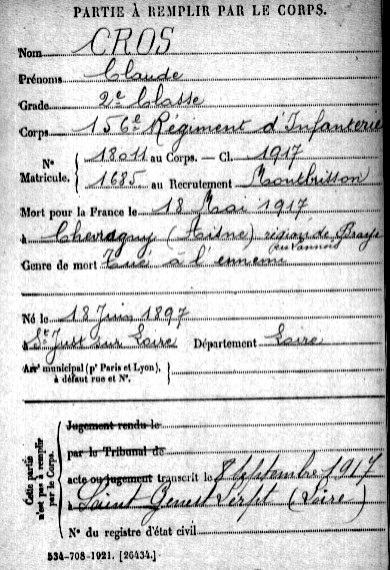 PARTIE À REMPLIR PAR LE CORPS.
Nom CROS
Prénoms Claude
Grade 2e Classe
Corps 156e Régiment d'Infanterie
N° Matricule. { 18011 au Corps. — Cl. 1917
1685 au Recrutement Montbrison
Mort pour la France le 18 Mai 1917
à Chevregny (Aisne) région de
en Vannois
Genre de mort Tué à l'ennemi
Né le 18 Juin 1897
à St Just sur Loire Département Loire
Arrt municipal (pr Paris et Lyon), à défaut rue et N°. {
Cette partie n'est pas à remplir par le Corps.
Jugement rendu le
par le Tribunal de
acte ou jugement transcrit le 8 Septembre 1917
à Saint Genest Lerpt (Loire)
N° du registre d'état civil
534-708-1921. [26434.]